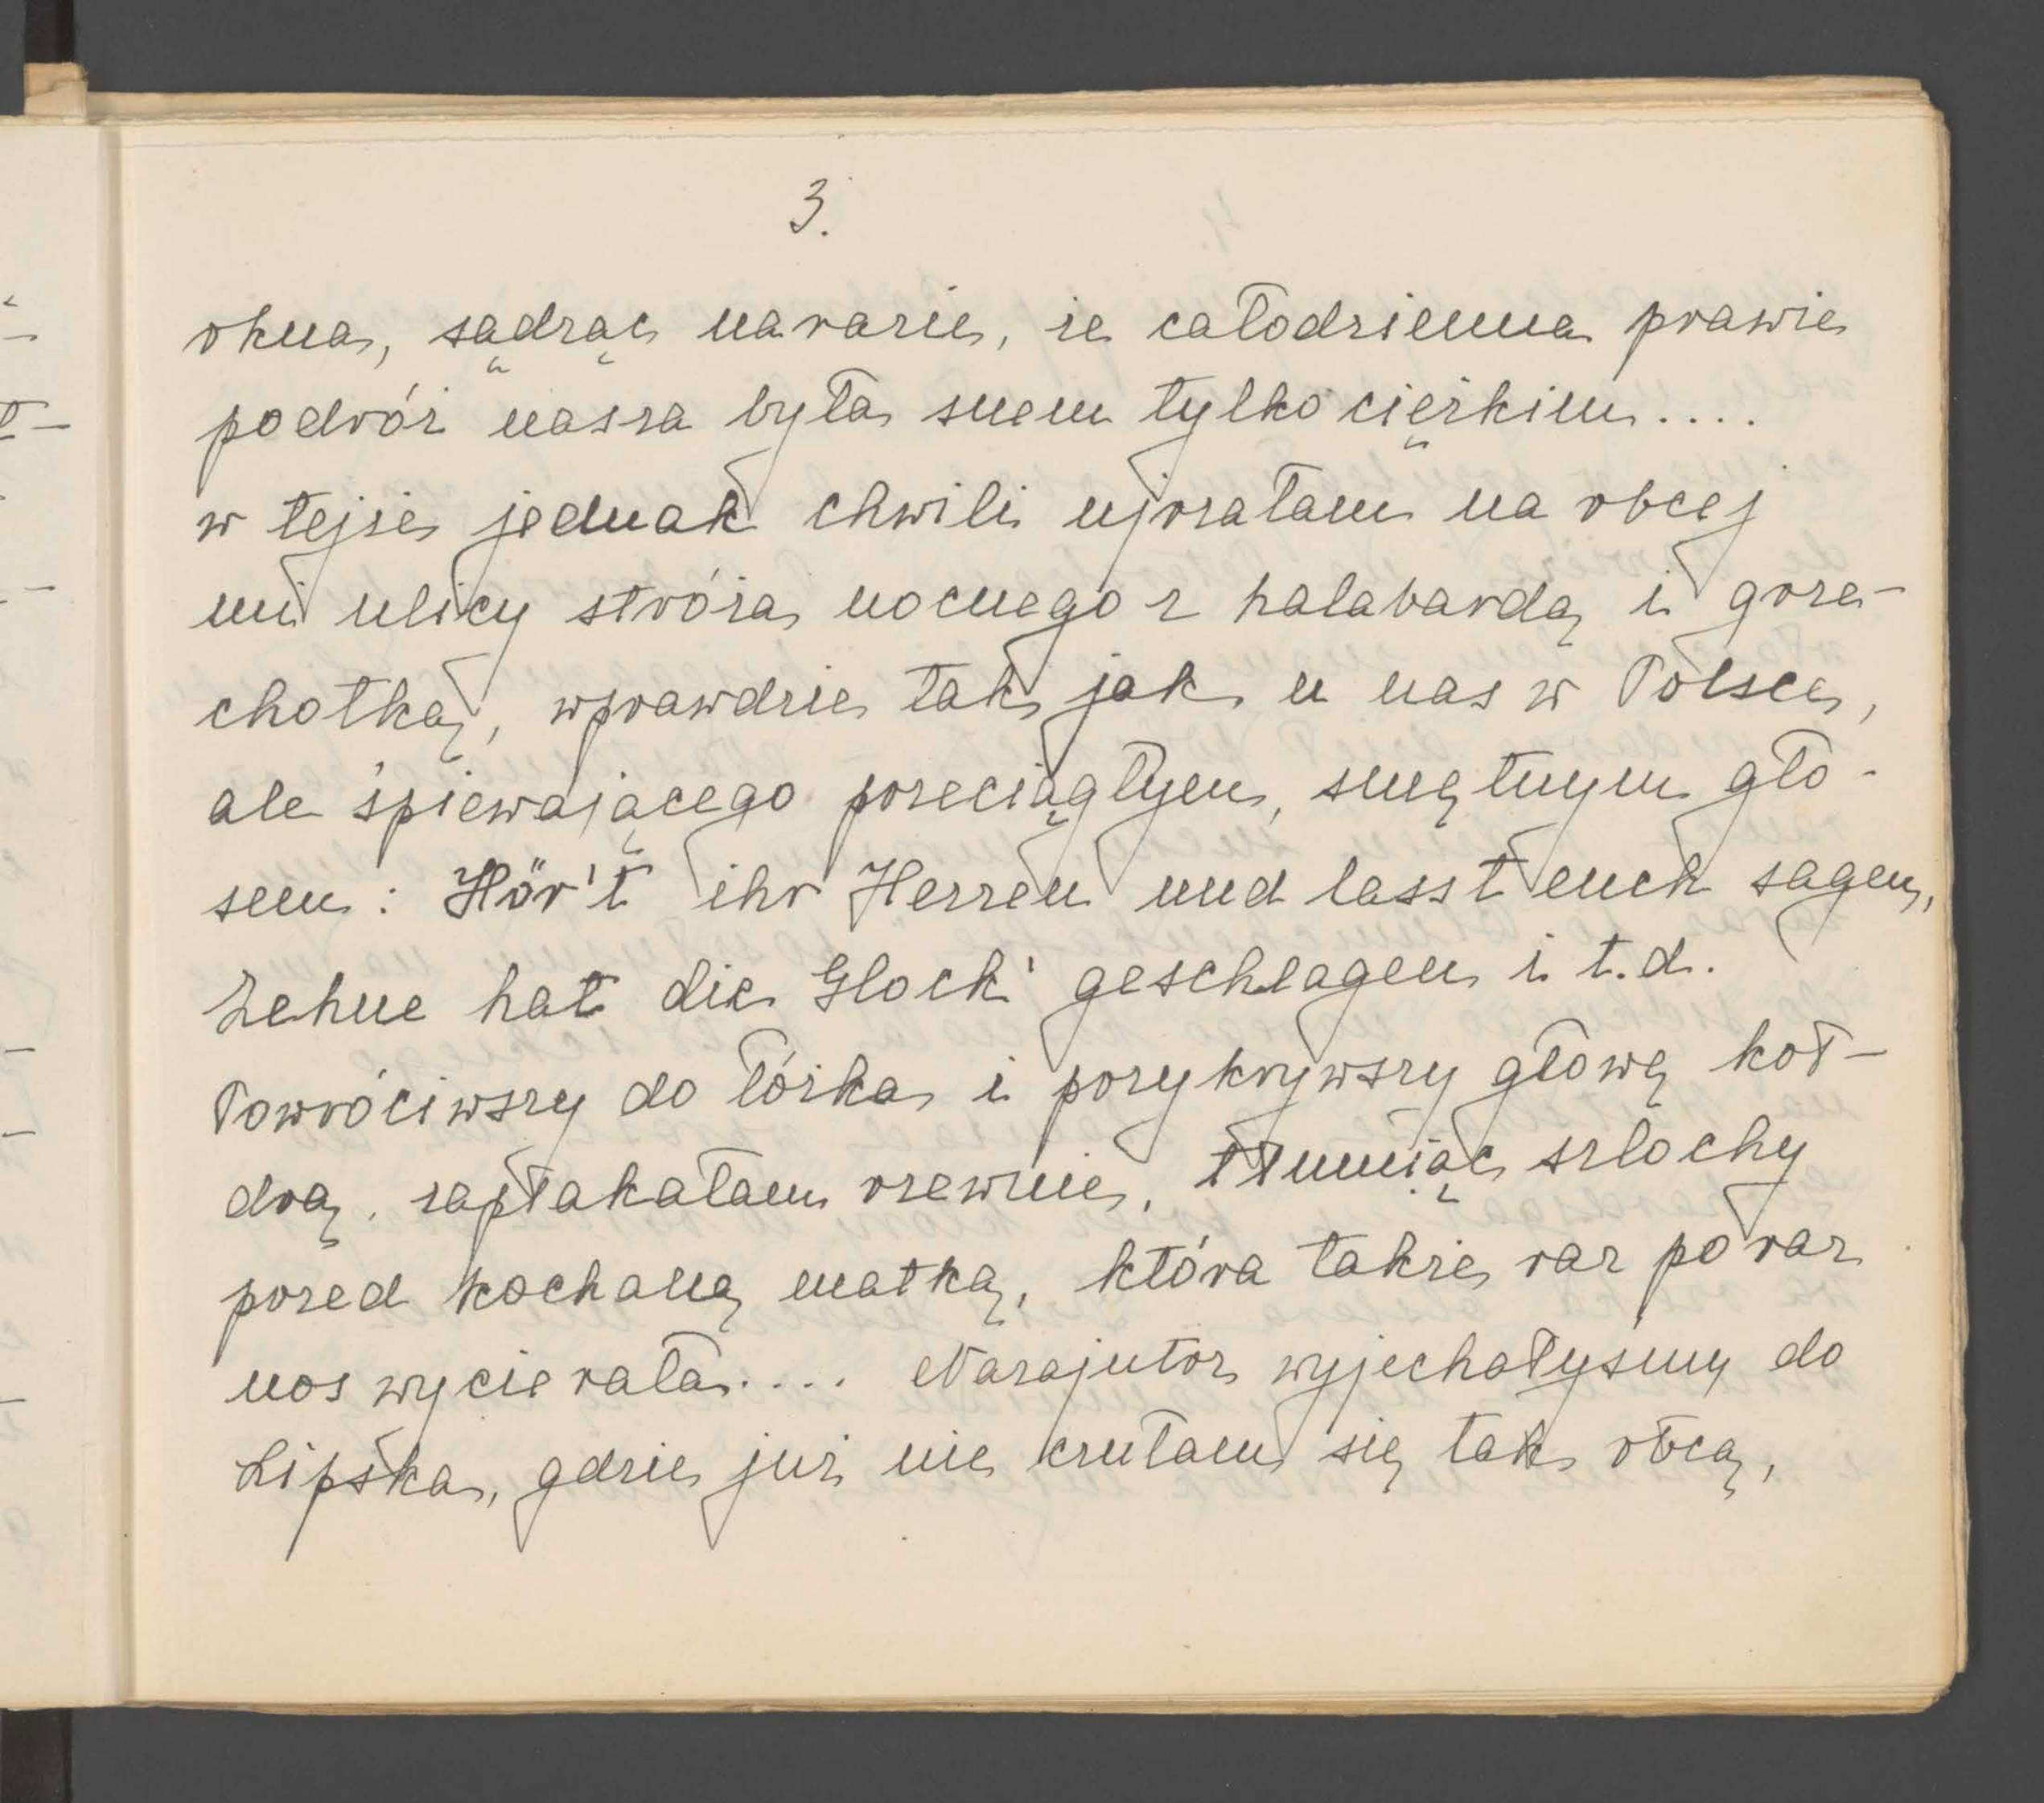 3.
okna, sądząc narazie, że całodzienna prawie
podróż nasza była snem tylko ciężkim....
w tejże jednak chwili ujrzałam na obcej
mi ulicy stróża nocnego z halabardą i grze-
chotką, wprawdzie tak, jak u nas w Polsce,
ale śpiewającego przeciągłym, smętnym gło-
sem: Hör't ihr Herren und lasst euch sagen,
Zehne hat die Glock' geschlagen i t.d.
Powróciwszy do łóżka i przykrywszy głowę koł-
drą, zapłakałam rzewnie, tłumiąc szlochy
przed kochaną matką, która także raz po raz
nos wycierała.... Nazajutrz wyjechałyśmy do
Lipska, gdzie już nie czułam się tak obcą,